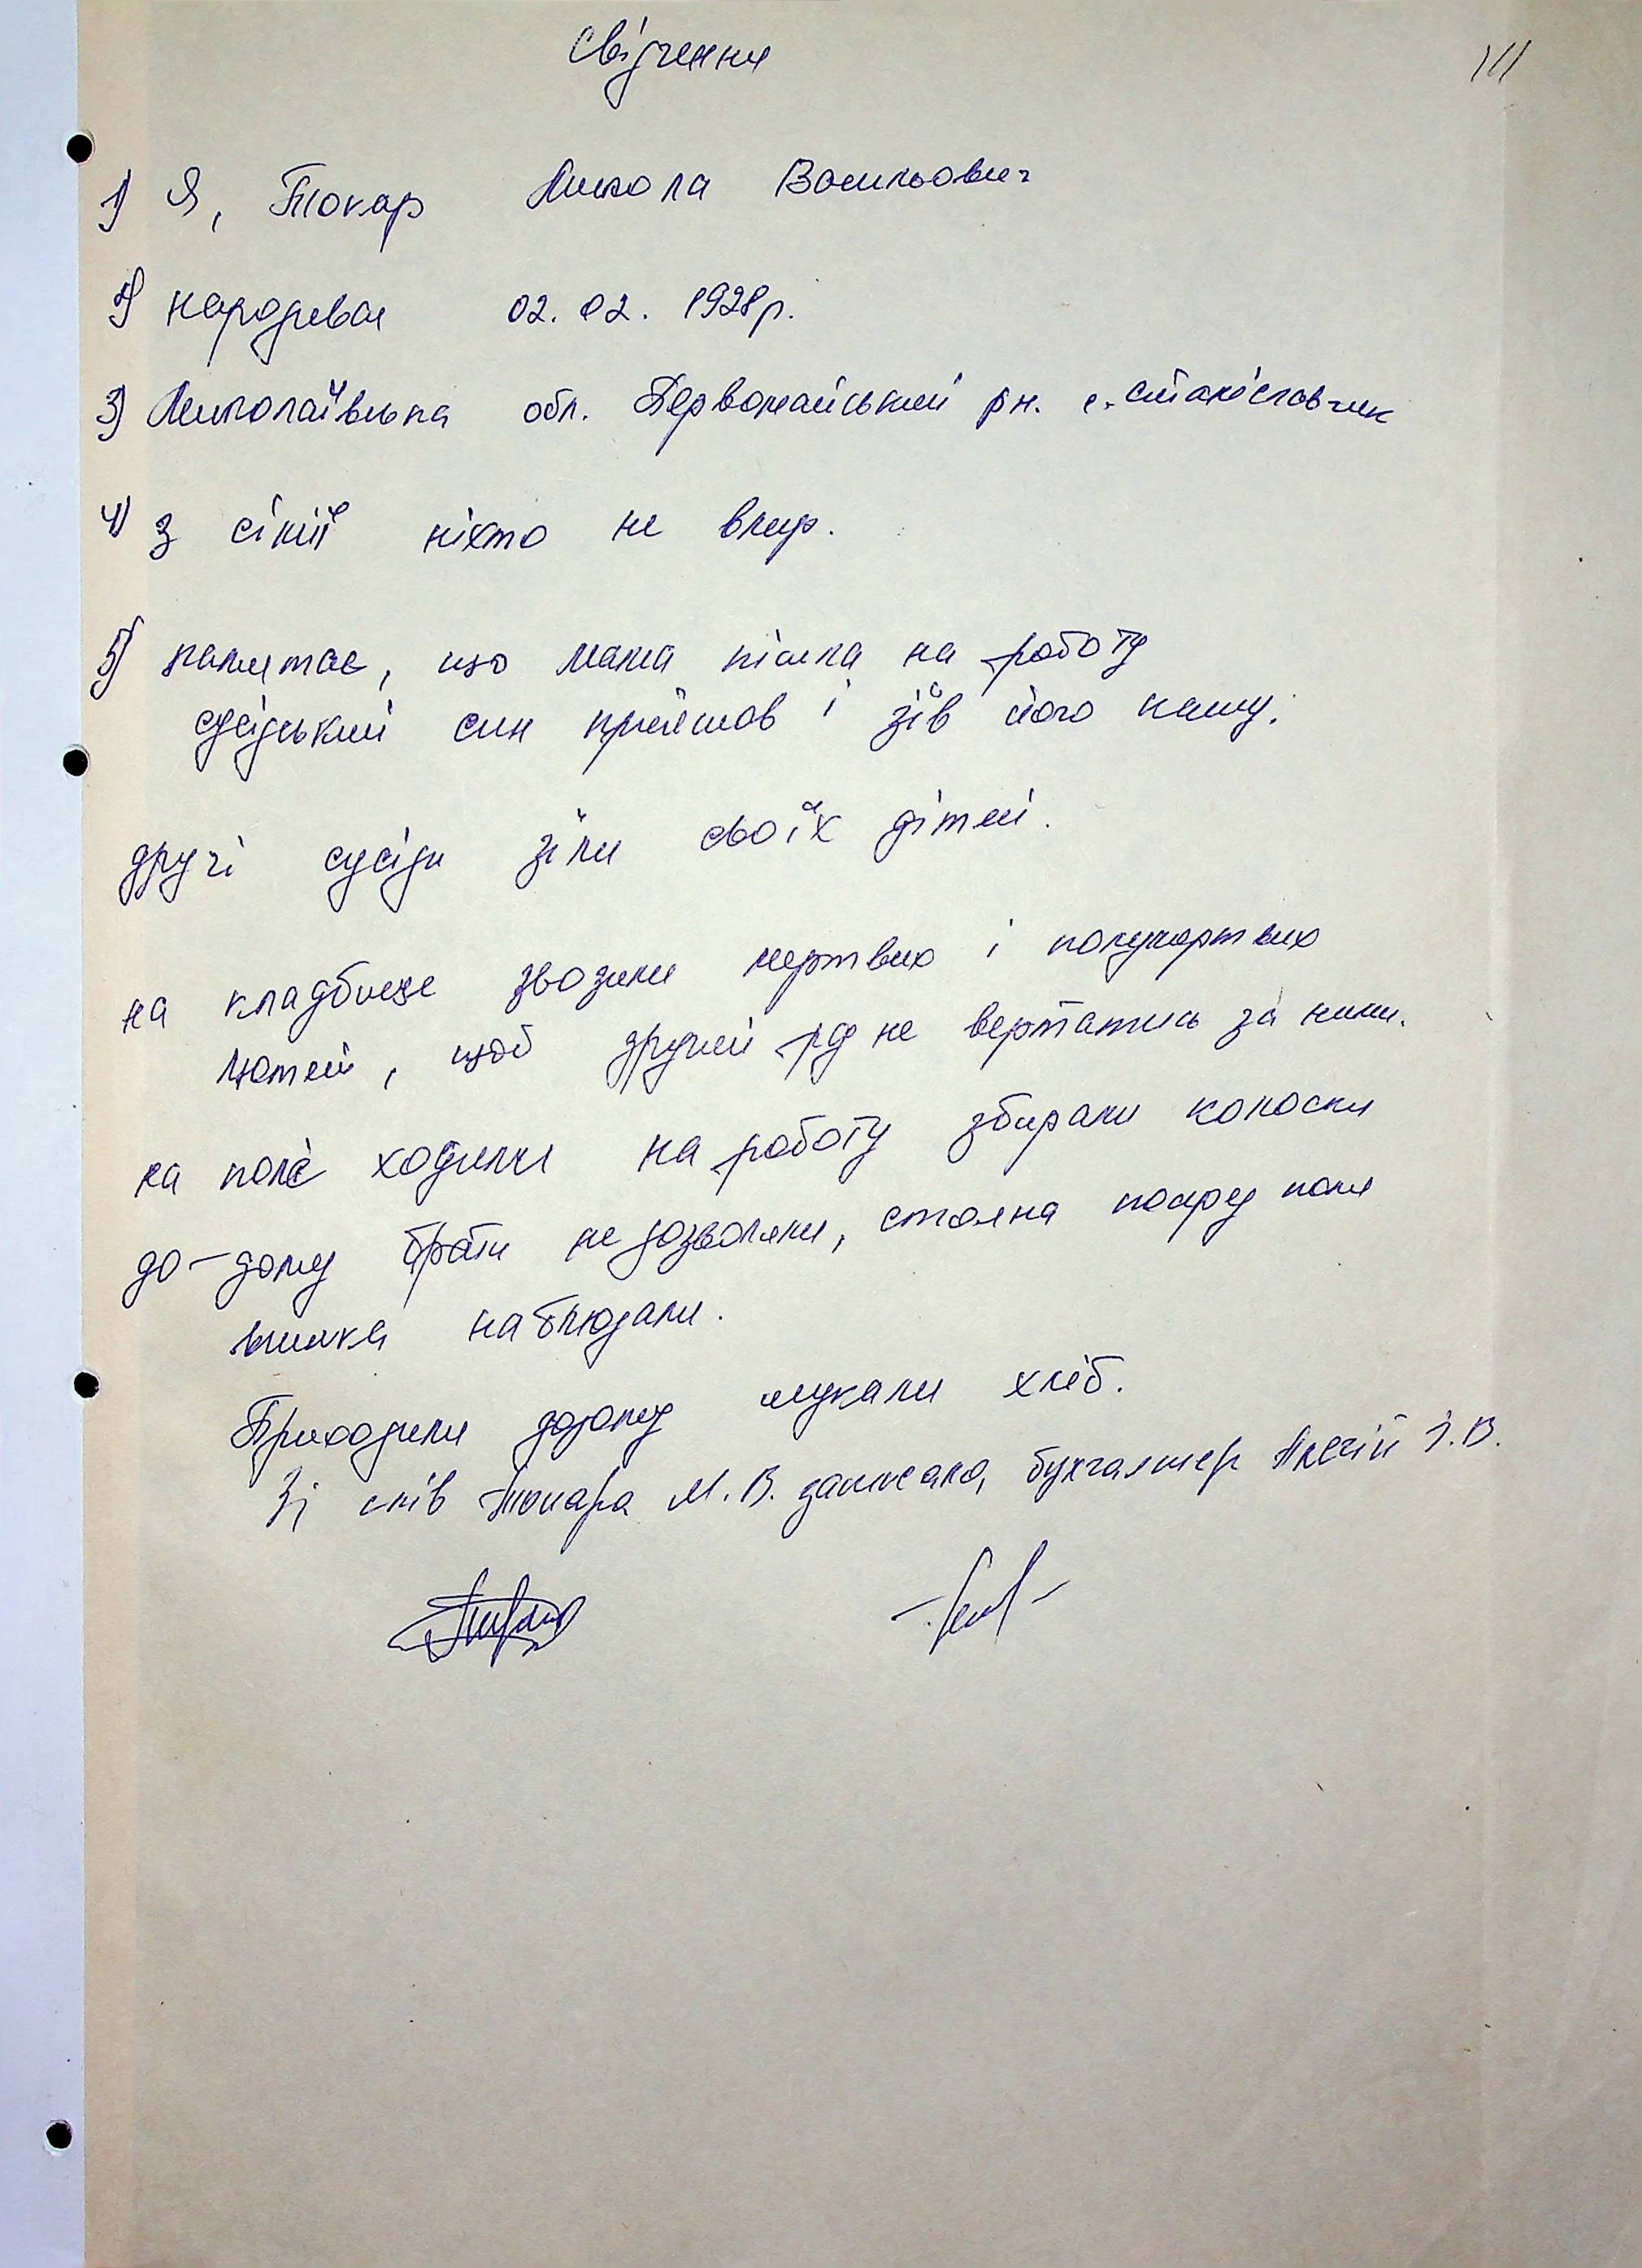 Свідчення
141
1) Я, Токар Микола Васильович
2) народився 02.02.1928р.
3) Миколаївська обл. Первомайський рн. с. Станіславчик
4) З сімї ніхто не вмер.
5) памятає, що мама пішла на роботу
сусідський син прийшов і зїв його кашу.
другі сусіди зїли своїх дітей.
на кладбище звозили мертвих і полумертвих
лютей, щоб другий раз не вертатись за ними.
на поле ходили на роботу збирали колоски
до-дому брати не дозволяли, стояла посеред поля
вишка наблюдали.
Приходили додому шукали хліб.
Зі слів Токара М.В. записала бухгалтер І.В.